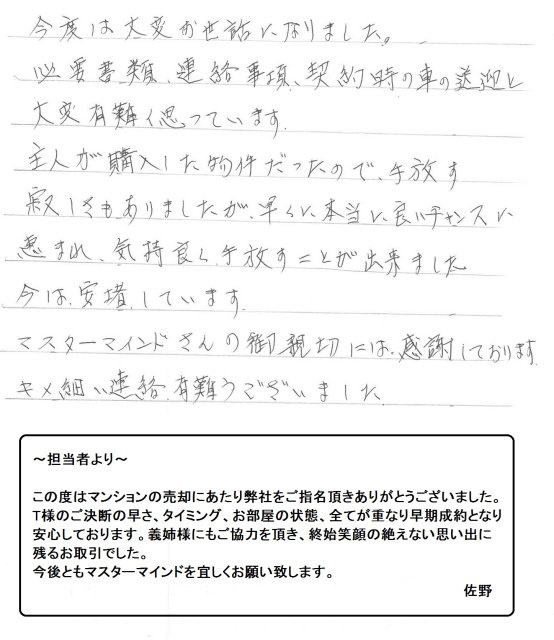 今度は大変お世話になりました。
必要書類、連絡事項、契約時の車の送迎と
大変有難く思っています。
主人が購入した物件だったので、手放す
寂しさもありましたが、早くに本当に良いチャンスに
恵まれ、気持良く手放すことが出来ました
今は、安堵しています。
マスターマインドさんの御親切には、感謝しております。
キメ細い連絡、有難うございました
～担当者より～
この度はマンションの売却にあたり弊社をご指名頂きありがとうございました。
T様のご決断の早さ、タイミング、お部屋の状態、全てが重なり早期成約となり
安心しております。義姉様にもご協力を頂き、終始笑顔の絶えない思い出に
残るお取引でした。
今後ともマスターマインドを宜しくお願い致します。
佐野